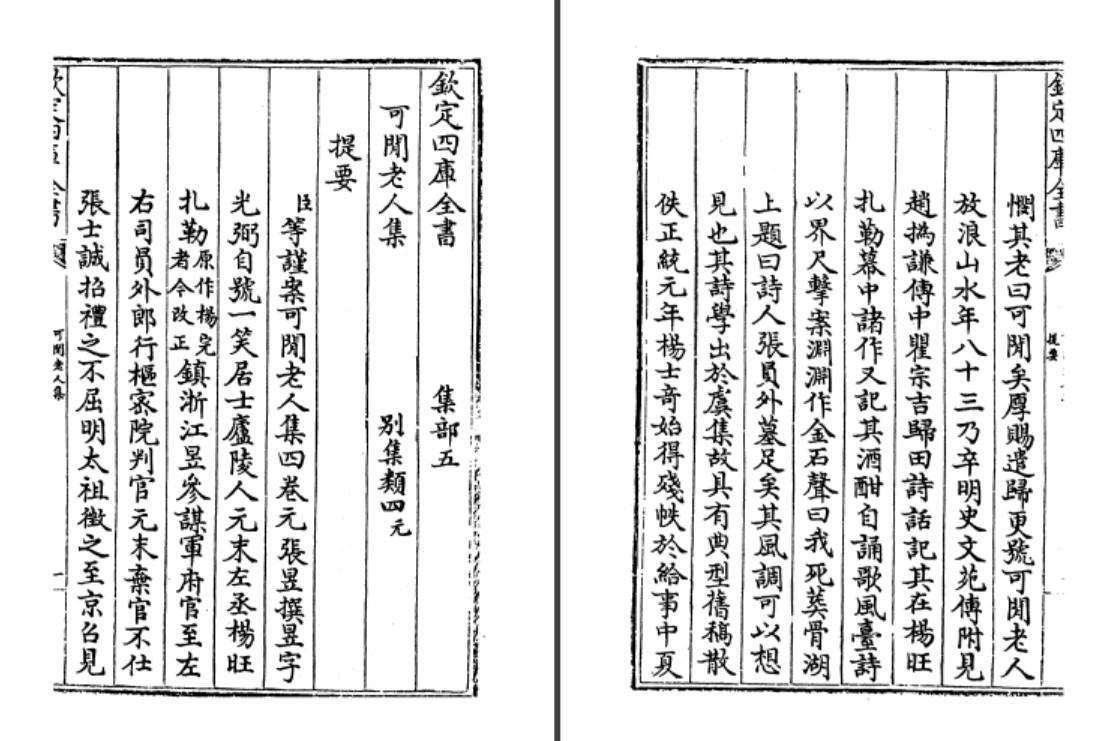 欽定四庫全書　集部五
可閒老人集　別集類四元
提要
臣等謹案可閒老人集四卷元張昱撰昱字
光弼自號一笑居士廬陵人元末左丞楊旺
扎勒原作楊完者今改正鎮浙江昱參謀軍府官至左
右司員外郎行樞密院判官元末棄官不仕
張士誠招禮之不屈明太祖徵之至京召見
可閒老人集
一
欽定四庫全書
提要
憫其老曰可閒矣厚賜遣歸更號可閒老人
放浪山水年八十三乃卒明史文苑傳附見
趙撝謙傳中瞿宗吉歸田詩話記其在楊旺
扎勒幕中諸作又記其酒酣自誦歌風臺詩
以界尺擊案淵淵作金石聲曰我死葬骨湖
上題曰詩人張員外墓足矣其風調可以想
見也其詩學出於虞集故具有典型舊稿散
佚正統元年楊士奇始得殘帙於給事中夏